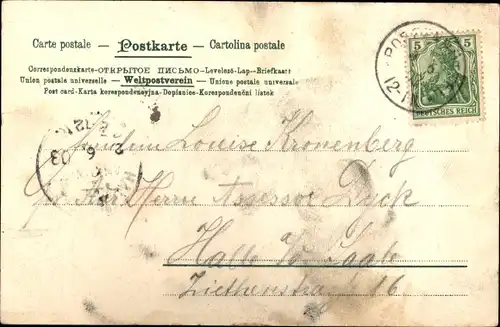 Carte postale – Postkarte – Cartolina postale
Correspondenzkarte-ОТКРЫТОЕ ПИСЬМО-Levelező-Lap-Briefkaart
Union postale universelle – Weltpostverein – Unione postale universale
Post card-Karta korespondencyjna-Dopisnice-Korespondenční lístek
5 5
DEUTSCHES REICH
POS
12-1
2 6 03
Fräulein Louise Kronenberg
Adr Herrn Assessor Dyck
Halle a/ Saale
Ziethenstraße 16